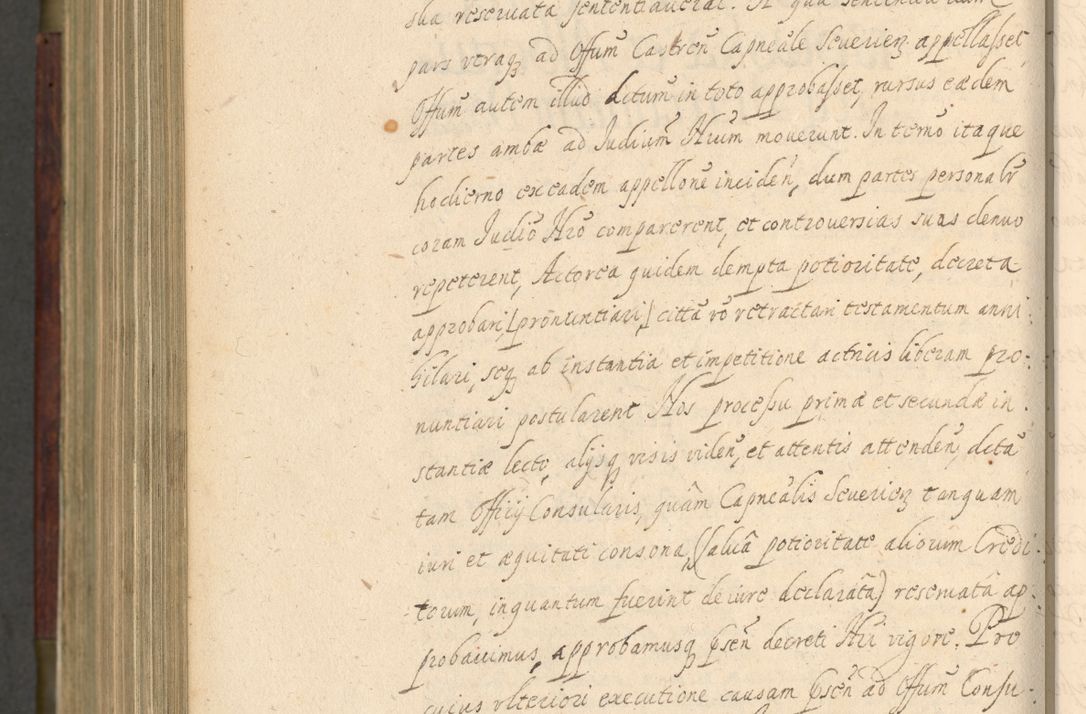 sua reseruata sententiauerat. A qua sententia dum
pars vtraq, ad Offum̃ Castren̄ Capneãle Seueriens appellasset,
Offum̃ autem illud dctum in toto approbasset, rursus eædem
partes ambæ ad Judium̃ Nrum mouerunt. In termō itaque
hodierno ex eadem appellonẽ inciden̄, dum partes personalr̃
coram Judiõ Nrõ comparerent, et controuersias suas denuo
repeterent, Actorea quidem dempta potioritate, decreta
approbari, [pronuntiari] cittã rõ retractari testamentum anni:
hilari, seq, ab instantia et impetitione actricis liberam pro:
nuntiari postularent Nos processu primæ et secundæ in:
stantiæ lecto, alijsq, visis viden̄, et attentis attenden̄, dcta
tam Officij Consularis, quãm Capnealis Seueriens tanquam
iuri et æquitati consona, (salua potioritate aliorum Credi:
torum, inquantum fuerint de iure declarata) reseruatâ ap:
probauimus, approbamusq, p̃sen̄ decreti Nri vigore. Pro
cuius vlteriori executione causam p̃sen̄ ad Offum̃ Consu: